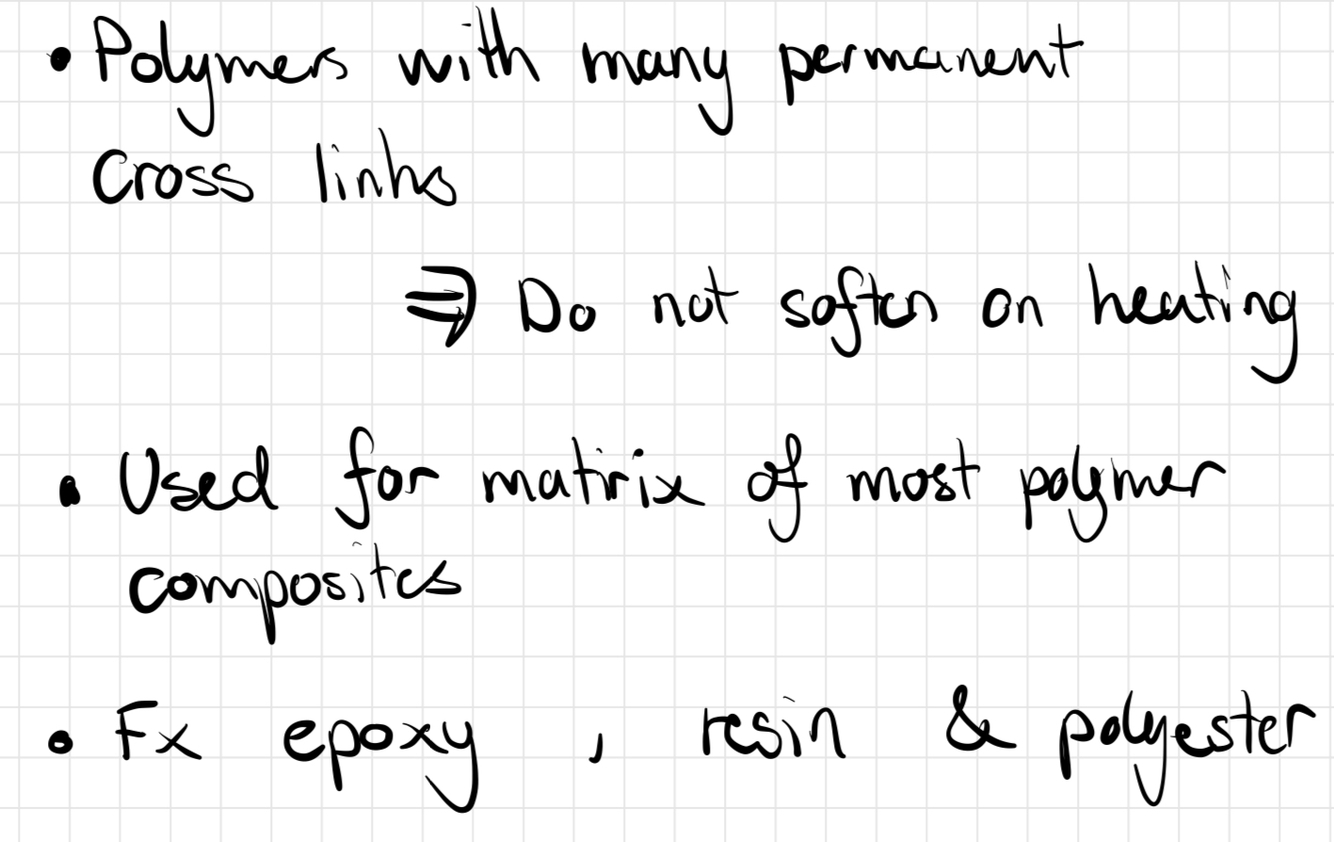 • Polymers with many permanent
Cross links
⇒ Do not soften on heating
• Used for matrix of most polymer
composites
• Fx epoxy , resin & polyester